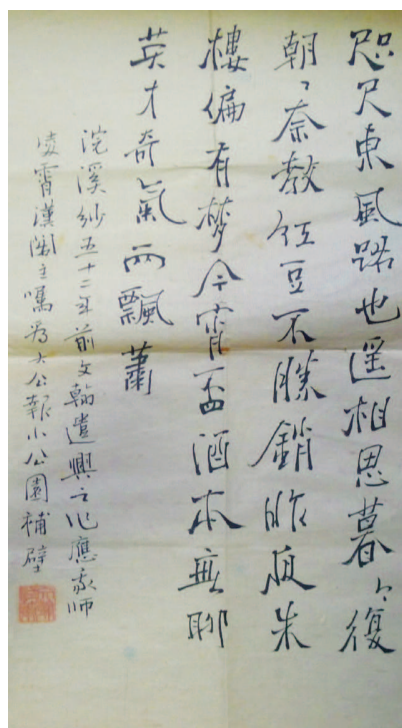 咫尺東風路也遥相思暮々復
朝々奈教紅豆不勝銷昨夜朱
樓偏有梦今宵盃酒本無聊
英才奇氣兩飄蕭
浣溪紗五十二年前文翰遺興之作應敬師
凌霄漢閣主囑為大公報小公園補壁